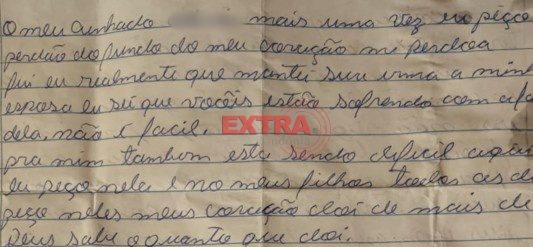 O meu cunhado mais uma vez eu peço
perdão do fundo do meu coração mi perdoa
fui eu realmente que matei sua irma a minha
esposa eu sei que vocêis estão sofrendo com a fa
dela, não é facil.
EXTRA
pra mim tambem esta sendo dificil aqui
eu peço nela e no meus filhos todos os di
peço neles meus coração doai de mais de
Deus sabe o quanto que doi.